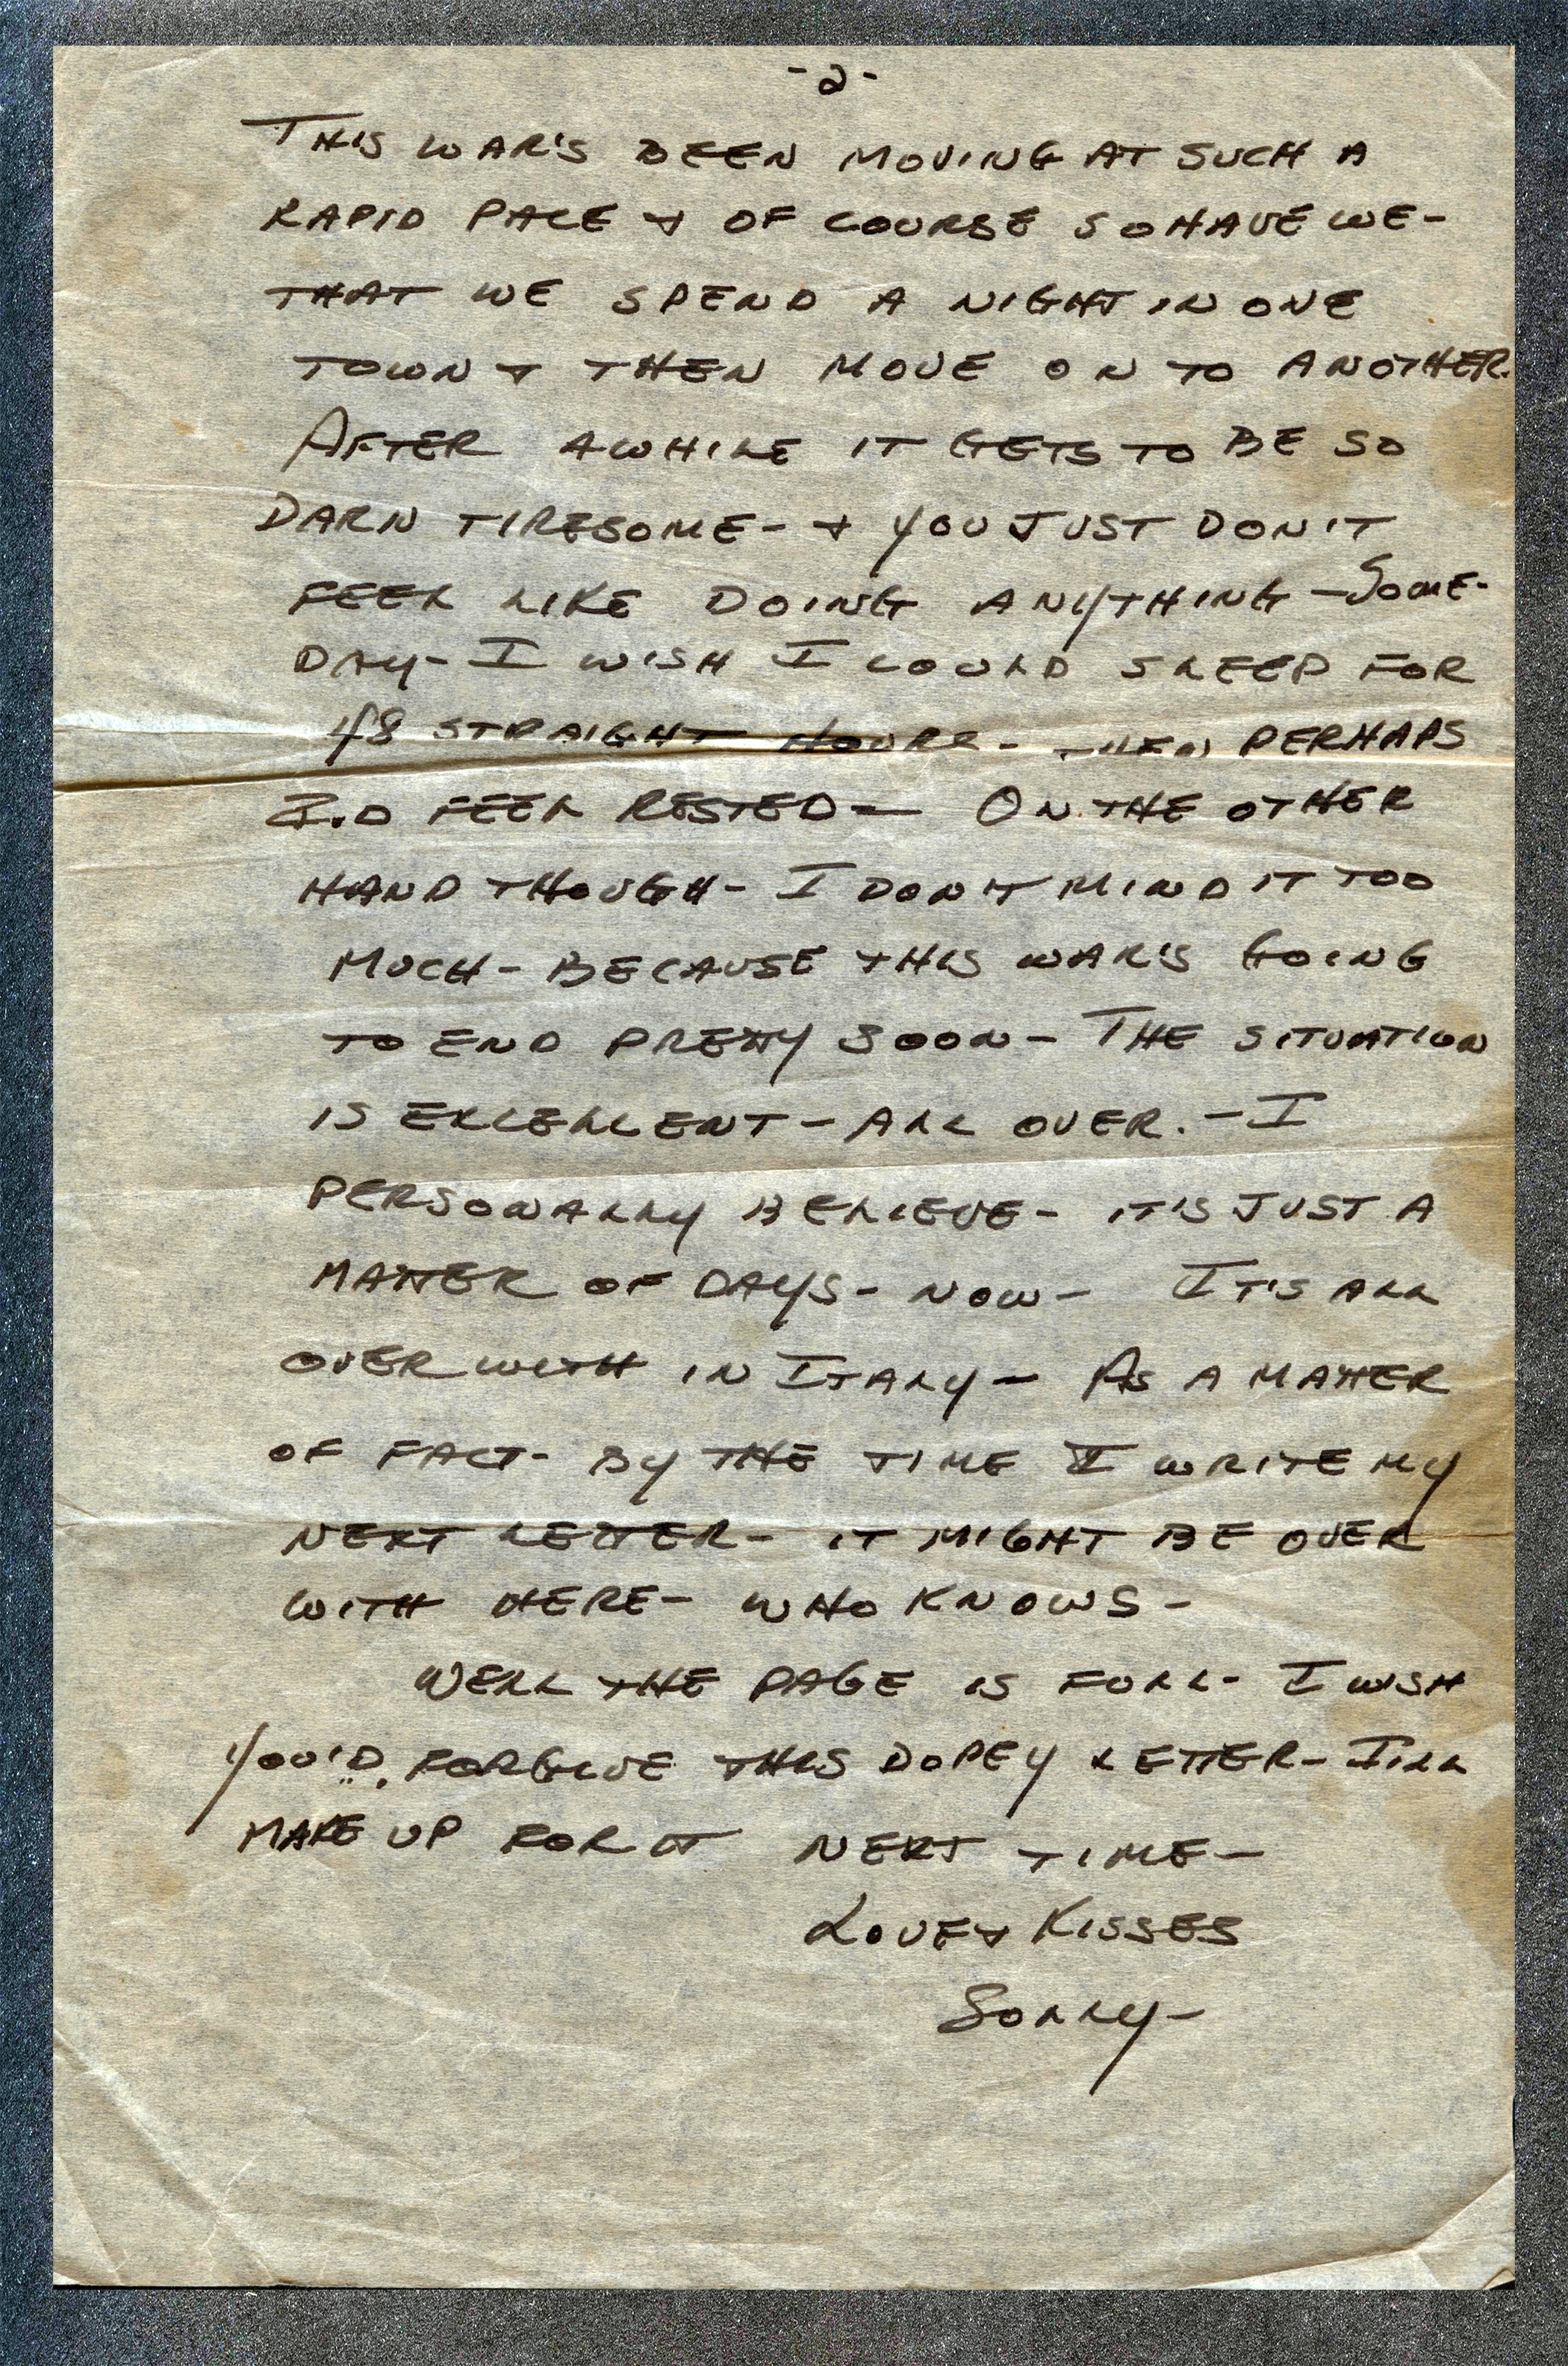 -2-
THIS WAR'S BEEN MOVING AT SUCH A
RAPID PACE + OF COURSE SO HAVE WE-
THAT WE SPEND A NIGHT IN ONE
TOWN + THEN MOVE ON TO ANOTHER.
AFTER AWHILE IT GETS TO BE SO
DARN TIRESOME- + YOU JUST DON'T
FEEL LIKE DOING ANYTHING - SOME-
DAY- I WISH I COULD SLEEP FOR
48 STRAIGHT HOURS - THEN PERHAPS
I'D FEEL RESTED - ON THE OTHER
HAND THOUGH - I DON'T MIND IT TOO
MUCH - BECAUSE THIS WAR'S GOING
TO END PRETTY SOON - THE SITUATION
IS EXCELLENT - ALL OVER. - I
PERSONALLY BELIEVE - IT'S JUST A
MATTER OF DAYS - NOW - IT'S ALL
OVER WITH IN ITALY - AS A MATTER
OF FACT - BY THE TIME I WRITE MY
NEXT LETTER - IT MIGHT BE OVER
WITH HERE - WHO KNOWS -
WELL THE PAGE IS FULL - I WISH
YOU'D FORGIVE THIS DOPEY LETTER - I'LL
MAKE UP FOR IT NEXT TIME -
LOVE + KISSES
SOLLY -